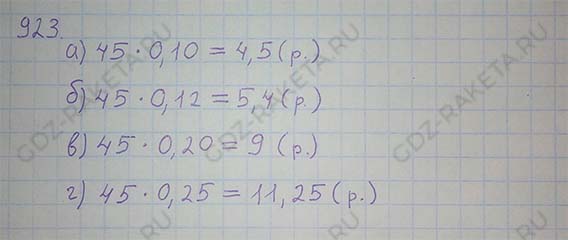 923.
а) 45 · 0,10 = 4,5 (р.)
б) 45 · 0,12 = 5,4 (р.)
в) 45 · 0,20 = 9 (р.)
г) 45 · 0,25 = 11,25 (р.)
GDZ-RAKETA.RU
GDZ-RAKETA.RU
GDZ-RAKETA.RU